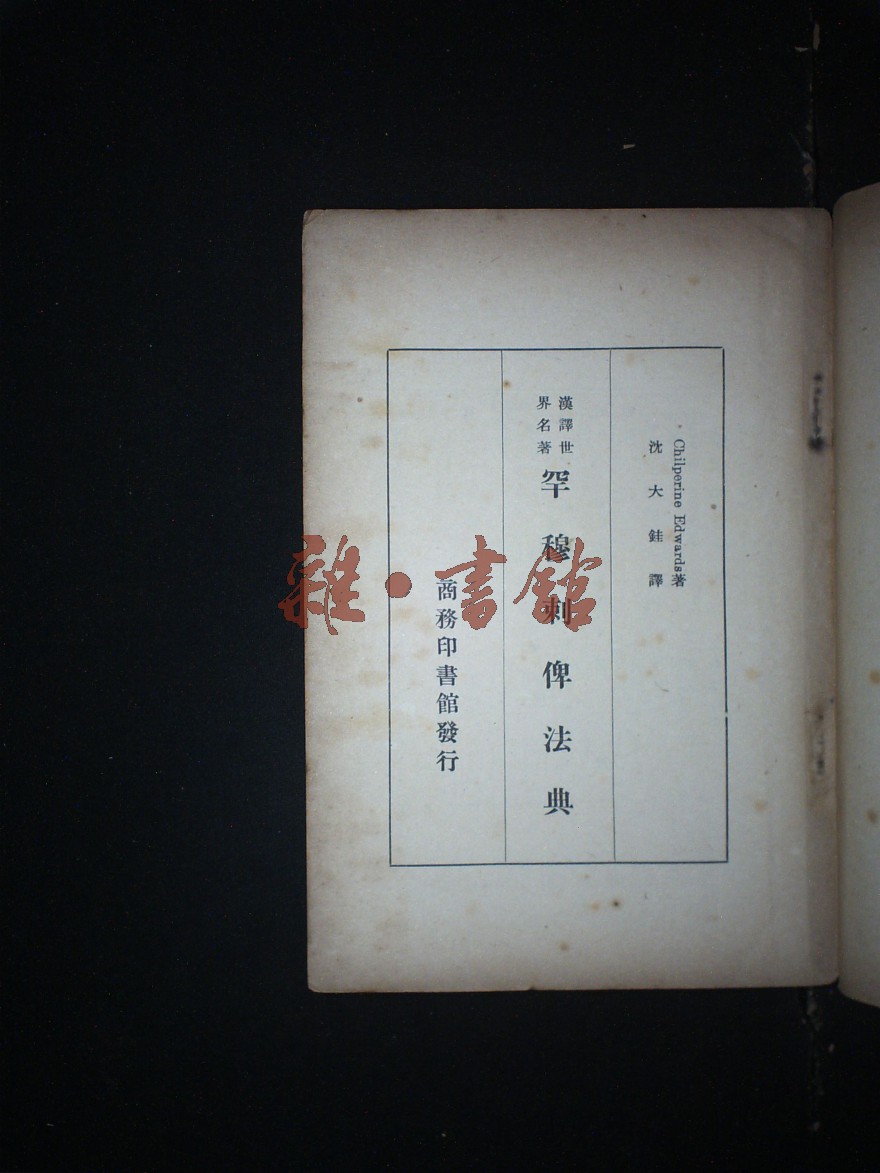 Chilperine Edwards著
沈大銈譯
漢譯世
界名著
罕穆剌俾法典
商務印書館發行
雜·書館